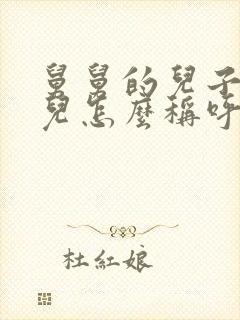 舅舅的兒子
兒怎麼稱呼
杜紅娘